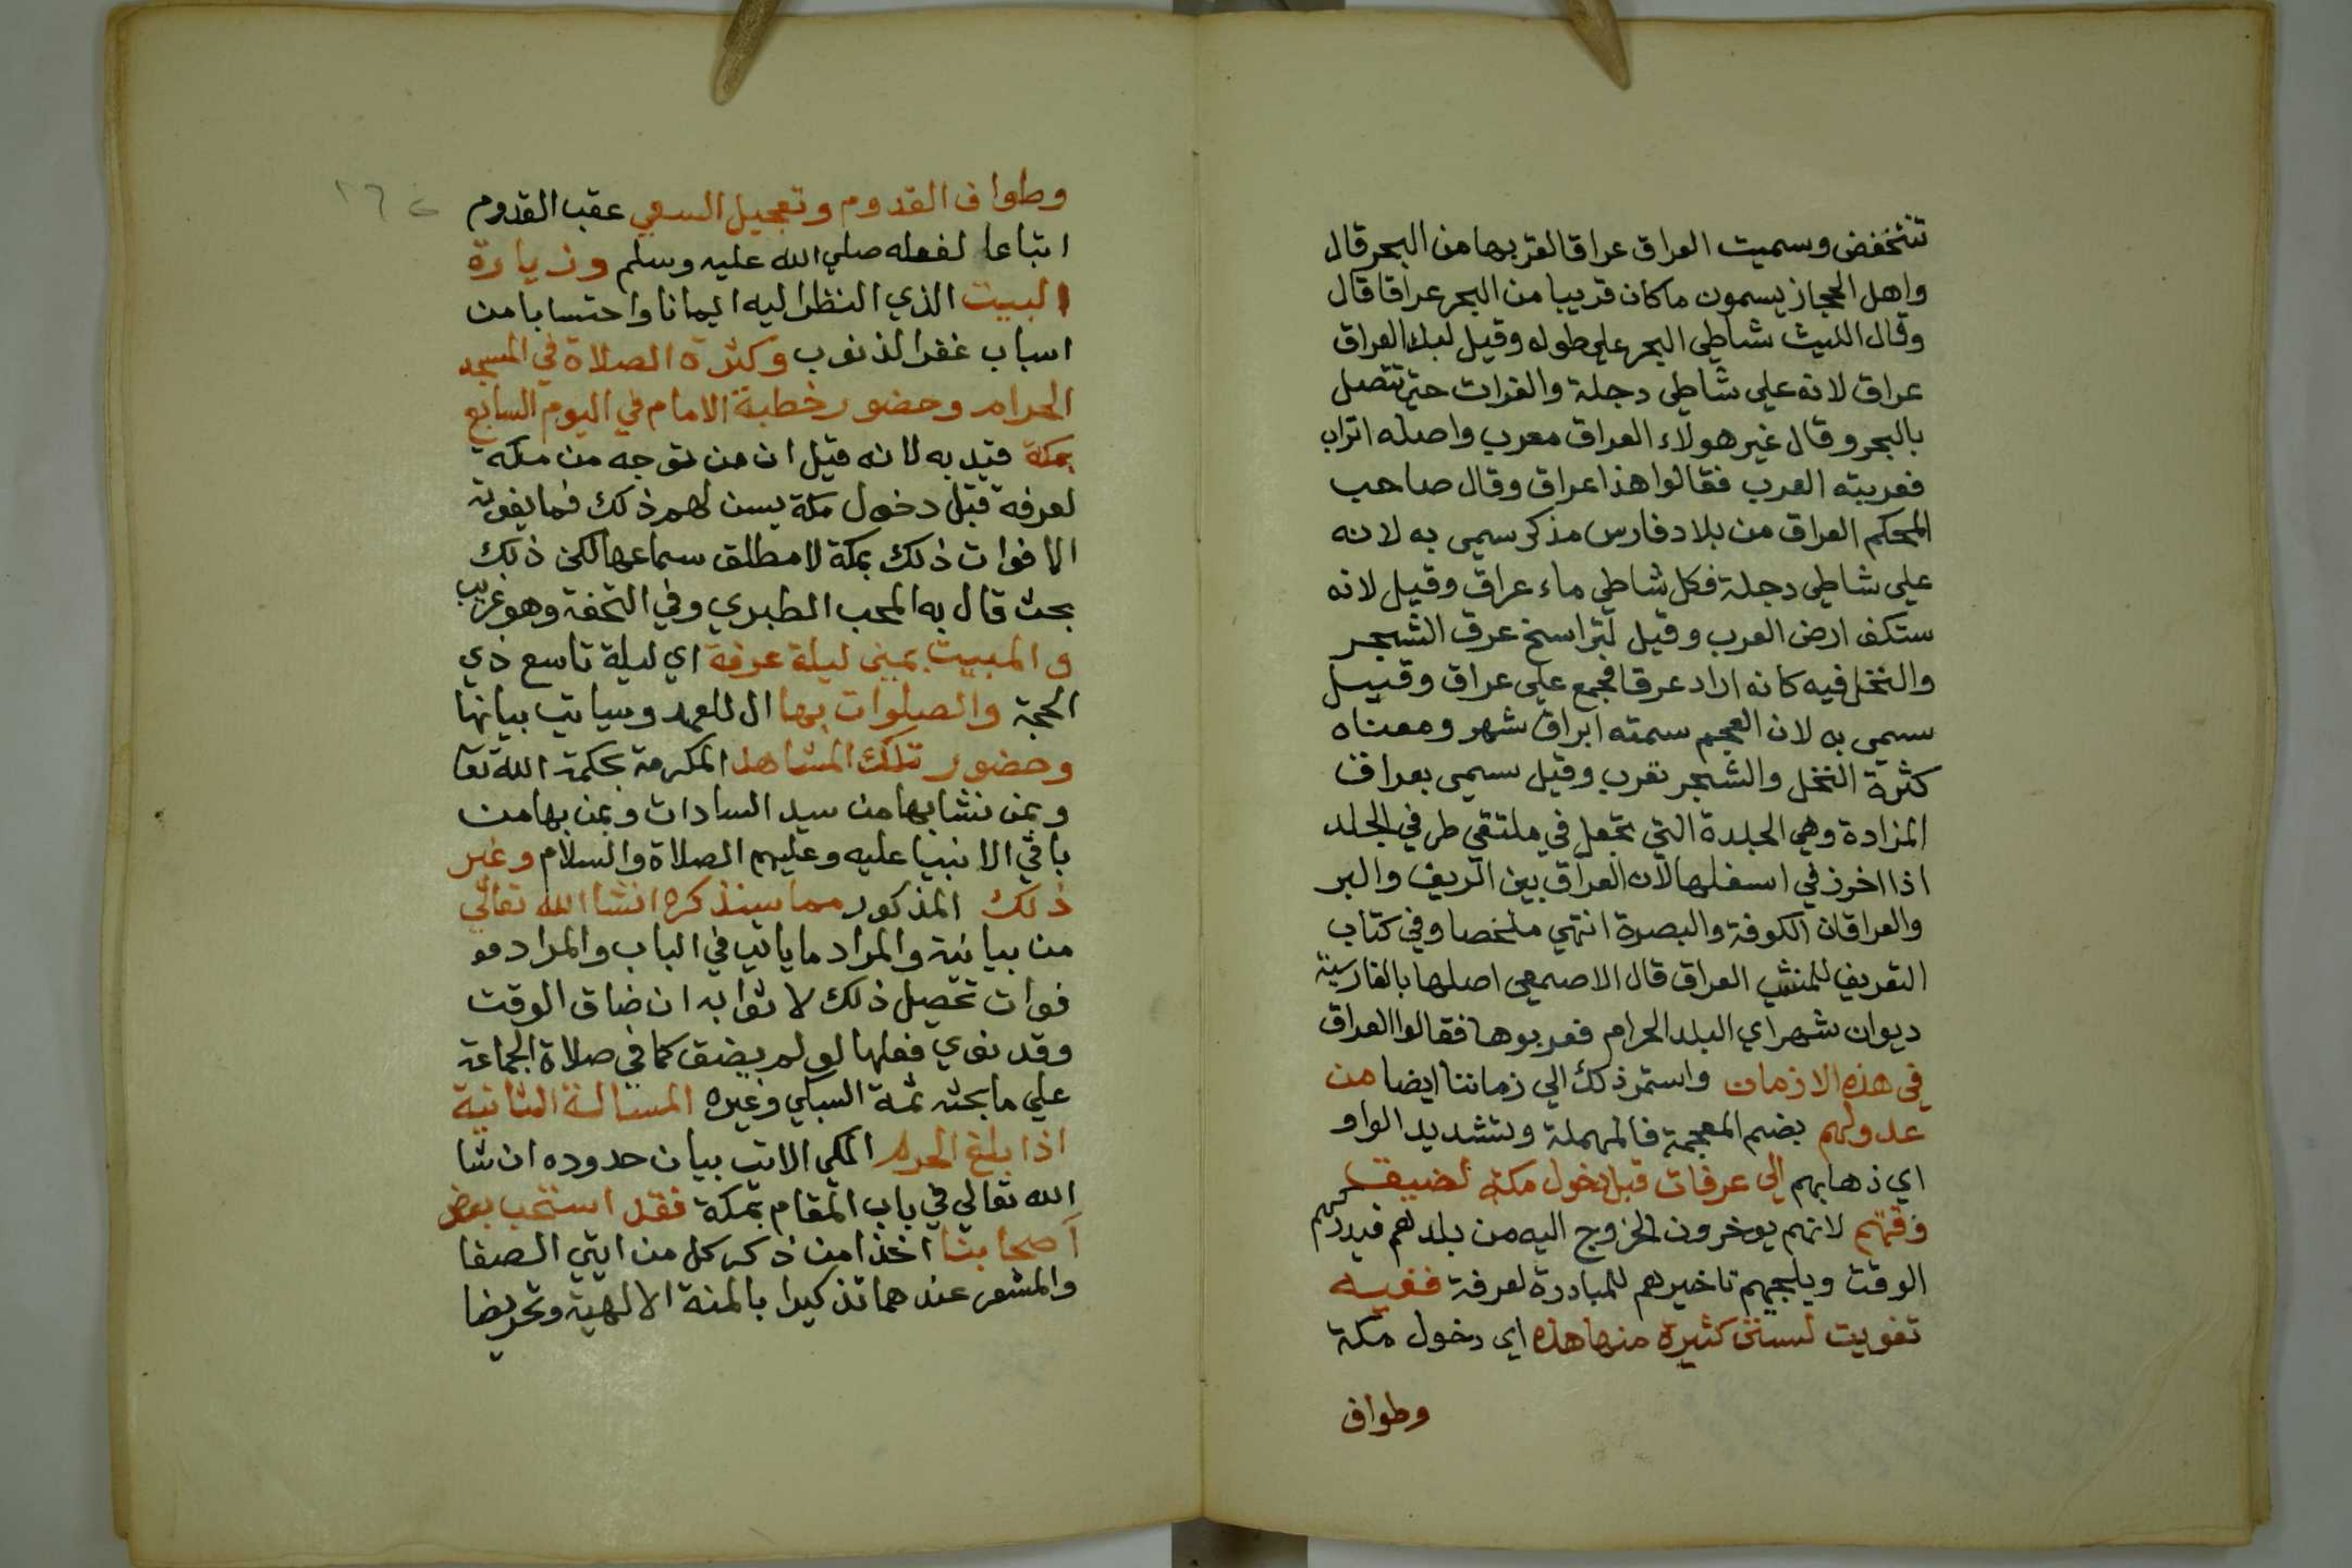 تنخفض وسميت العراق عراقا لقربها من البحر قال
واهل الحجاز يسمون ما كان قريبا من البحر عراقا قال
وقال الليث شاطي البحر علي طوله وقيل لبلد العراق
عراق لانه علي شاطي دجلة والفرات حتي تتصل
بالبحر وقال غير هولاء العراق معرب واصله اتراب
فعربته العرب فقالوا هذا عراق وقال صاحب
المحكم العراق من بلاد فارس مذكر سمي به لانه
علي شاطي دجلة فكل شاطي ماء عراق وقيل لانه
ستكف ارض العرب وقيل لتراسخ عرق الشجر
والنخل فيه كانه اراد عرقا فجمع علي عراق وقيل
سمي به لان العجم سمته ابراق شهر ومعناه
كثرة النخل والشجر تعرب وقيل سمي بعراق
المزادة وهي الجلدة التي تجعل في ملتقي طرفي الجلد
اذا اخرز في اسفلها لان العراق بين الريف والبر
والعراقان الكوفة والبصرة انتهي ملخصا وفي كتاب
التعريف للمنشي العراق قال الاصمعي اصلها بالفارسية
ديوان شهر اي البلد الحرام فعربوها فقالوا العراق
في هذه الازمان واستمر ذلك الي زماننا ايضا من
عدولهم بضم المعجمة فالمهملة وتشديد الواو
اي ذهابهم الي عرفات قبل دخول مكة لضيق
وقتهم لانهم يوخرون الخروج اليه من بلدهم فيدركهم
الوقت ويلجيهم تاخيرهم للمبادرة لعرفة ففيه
تفويت لسنن كثيرة منها هذه اي دخول مكة
وطواف
وطواف القدوم وتعجيل السعي عقب القدوم
اتباعا لفعله صلي الله عليه وسلم وزيارة
البيت الذي النظر اليه ايمانا واحتسابا من
اسباب غفر الذنوب وكثرة الصلاة في المسجد
الحرام وحضور خطبة الامام في اليوم السابع
بمكة قيد به لانه قيل ان من توجه من مكة
لعرفة قبل دخول مكة يسن لهم ذلك فما يفوته
الا فوات ذلك بمكة لا مطلق سماعها لكن ذلك
بحث قال به المحب الطبري وفي التحفة وهو غريب
والمبيت بمني ليلة عرفة اي ليلة تاسع ذي
الحجة والصلوات بها ال للعهد وسياتي بيانها
وحضور تلك المشاهد المكرمة بحكمة الله تعا
وبمن نشا بها من سيد السادات وبمن بها من
باقي الانبيا عليه وعليهم الصلاة والسلام وغير
ذلك المذكور مما سنذكره انشا الله تعالي
من بيانية والمراد ما ياتي في الباب والمراد مو
فوات تحصيل ذلك لا ثوابه ان ضاق الوقت
وقد نوي فعلها لو لم يضق كما في صلاة الجماعة
علي ما بحثه ثمة السبكي وغيره المسالة الثانية
اذا بلغ الحرم المكي الاتي بيان حدوده ان شا
الله تعالي في باب المقام بمكة فقد استحب بعض
اصحابنا اخذا من ذكر كل من ايتي الصفا
والمشعر عندهما تذكيرا بالمنة الالهية وتحريضا